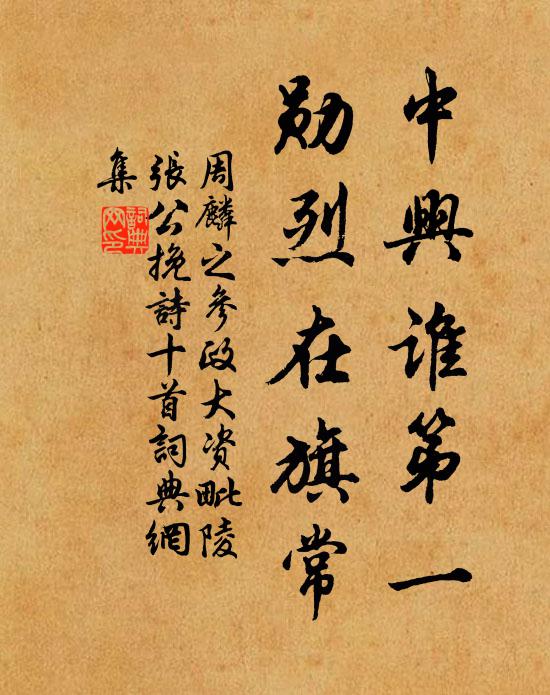 中興誰第一
勛烈在旗常
周麟之參政大资毗陵
張公挽詩十首詞典網
集
詞典网印